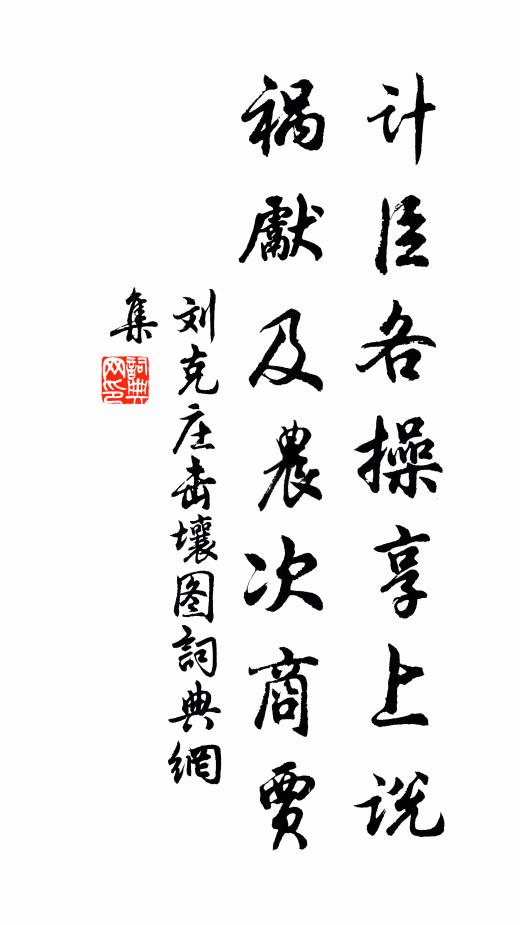 计臣各操享上说
祸献及农次商贾
刘克庄击壤图词典網
集
詞典网印